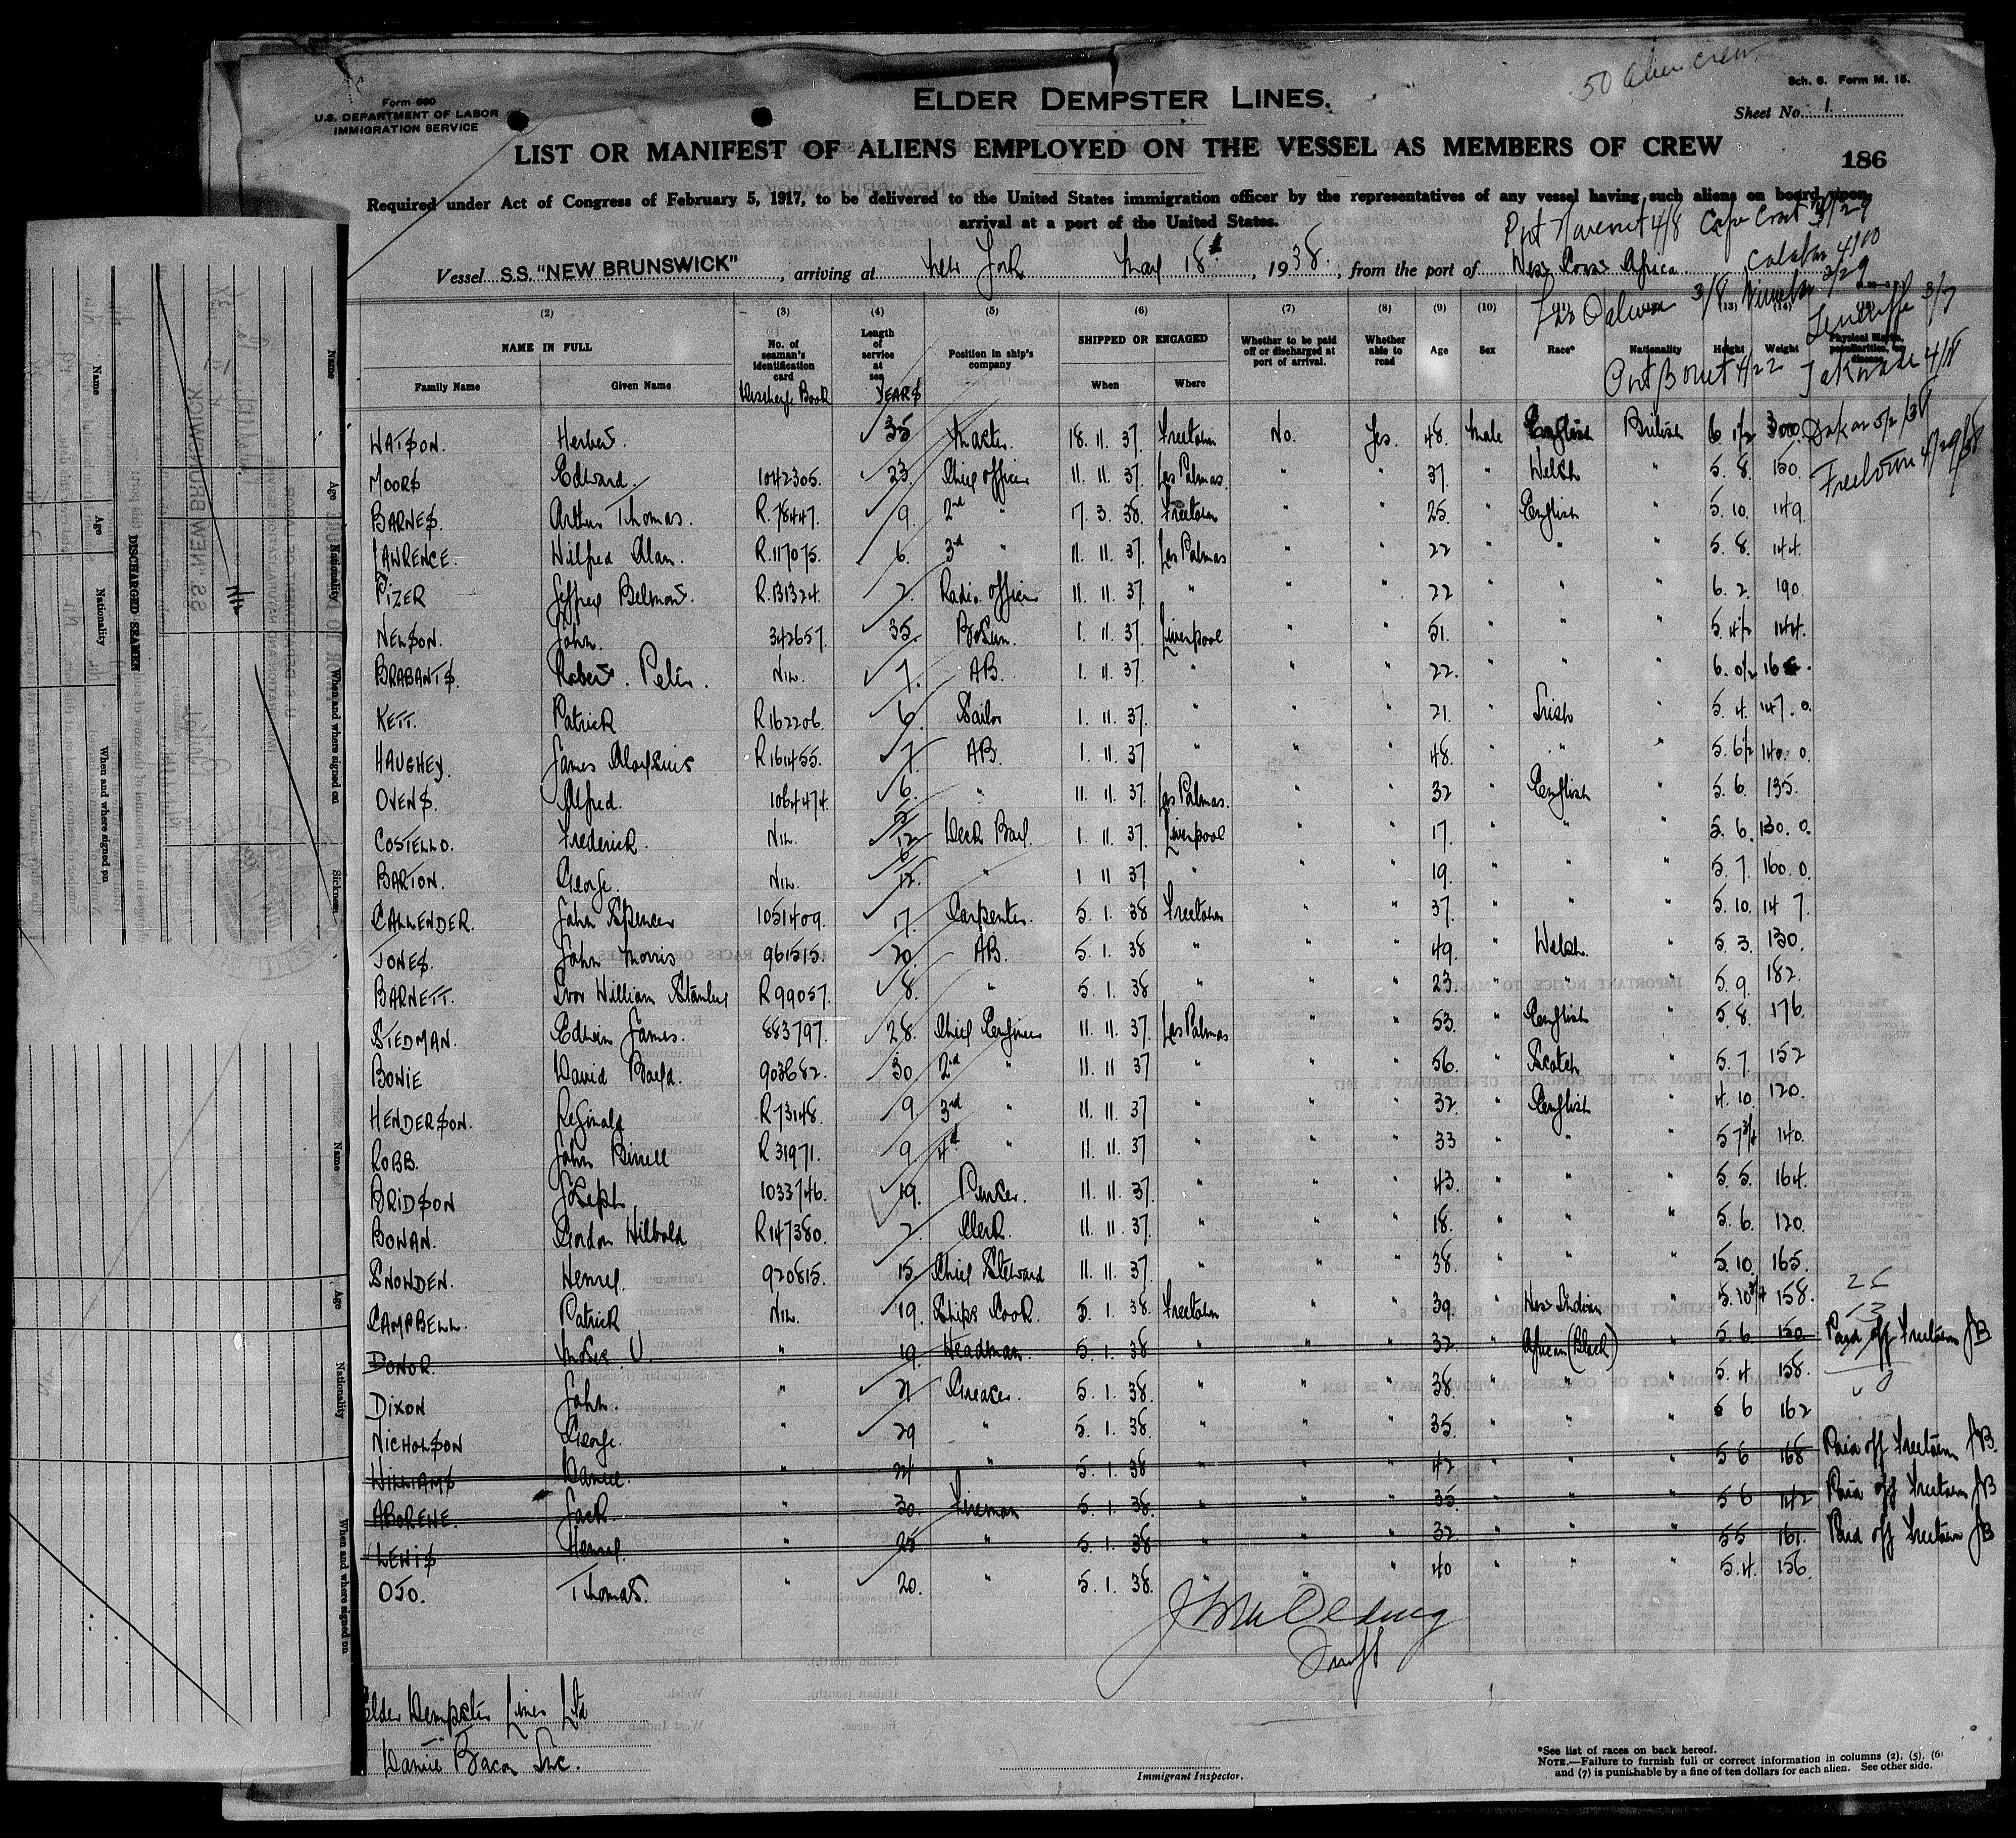 50 alien crew
Form 680
U.S. DEPARTMENT OF LABOR
IMMIGRATION SERVICE
ELDER DEMPSTER LINES.
Sch. 6. Form M. 15.
Sheet No. 1
LIST OR MANIFEST OF ALIENS EMPLOYED ON THE VESSEL AS MEMBERS OF CREW
186
Required under Act of Congress of February 5, 1917, to be delivered to the United States immigration officer by the representatives of any vessel having such aliens on board upon
arrival at a port of the United States.
Port Harcourt 4/8 Cape Coast 3/29
Calabar 4/10
Vessel S.S. "NEW BRUNSWICK", arriving at New York May 18, 1938, from the port of West Coast Africa
Las Palmas 3/8
Teneriffe 3/7
Port Bouet 4/22 Takoradi 4/18
Dakar 5/2/38
Freetown 4/29/38
(2) (3) (4) (5) (6) (7) (8) (9) (10) (13)
NAME IN FULL
Family Name Given Name
No. of seaman's identification card
Discharge Book
Length of service at sea
YEARS
Position in ship's company
SHIPPED OR ENGAGED
When Where
Whether to be paid off or discharged at port of arrival.
Whether able to read
Age Sex Race* Nationality Height Weight Physical marks, peculiarities, or disease
WATSON. Herbert. 35 Master. 18. 11. 37. Freetown No. Yes. 48. Male English British 6 1/2 300
MOORS Edward. 1042305. 23. Chief Officer 11. 11. 37. Las Palmas. " " 37. " Welsh " 5. 8. 150.
BARNES. Arthur Thomas. R.78447. 9. 2nd " 7. 3. 38. Freetown " " 25. " English " 5. 10. 149
LAWRENCE. Wilfred Alan. R.117075. 6. 3rd " 11. 11. 37. Las Palmas " " 22 " " " 5. 8. 144.
PIZER Jeffrey Belmont. R.131324. 2. Radio Officer 11. 11. 37. " " " 22 " " " 6. 2. 190.
NELSON. John. 342657. 35. BoSun. 1. 11. 37. Liverpool " " 51. " " " 5. 4 1/2 144.
BRABANTS. Robert. Peter. Nil. 7. AB. 1. 11. 37. " " " 22. " " " 6. 0 1/2
KETT. Patrick R162206. 6. Sailor 1. 11. 37. " " " 21. " Irish " 5. 4. 147. 0.
HAUGHEY. James Aloysius R161455. 7. AB. 1. 11. 37 " " " 48. " " " 5. 6 1/2 140. 0.
OVENS. Alfred. 1064474. 6. " 11. 11. 37. Las Palmas. " " 32 " English " 5. 6. 135.
COSTELLO. Frederick. Nil. 5/12 Deck Boy. 1. 11. 37. Liverpool " " 17. " " " 5. 6. 130. 0.
BARTON. George. Nil. 6/12. " 1 11 37 " " " 19. " " " 5. 7. 160. 0
CALLENDER. John Spencer 1051409. 17. Carpenter. 5. 1. 38 Freetown " " 37. " " " 5. 10. 147.
JONES. John Morris 961515. 20. AB. 5. 1. 38 " " " 49. " Welsh. " 5. 3. 130.
BARNETT. Ivor William Stanley R99057. 8. " 5. 1. 38 " " " 23. " " " 5. 9. 182.
STEDMAN. Edwin James. 883797. 28. Chief Engineer 11. 11. 37. Las Palmas " " 53. " English " 5. 8. 176.
BOWIE David Boyd. 903682. 30. 2nd " 11. 11. 37 " " " 56. " Scotch " 5. 7. 152
HENDERSON. Reginald R73148. 9. 3rd " 11. 11. 37 " " " 32. " English " 4. 10. 120.
ROBB. John Birrell R31971. 9 4th " 11. 11. 37 " " " 33 " " " 5 7 3/4 140.
BRIDSON Joseph 1033746. 19. Purser. 11. 11. 37. " " " 43. " " " 5. 5. 164.
BOWAN. Gordon R147380. 2. Clerk. 11. 11. 37. " " " 18. " " " 5. 6. 120.
SNOWDEN. Henry. 920815. 15. Chief Steward 11. 11. 37. " " " 38. " " " 5. 10. 165.
CAMPBELL. Patrick Nil. 19. Ships Cook. 5. 1. 38. Freetown " " 39. " West Indian " 5. 10 3/4 158.
DONOR. Moses U. " 19. Headman. 5. 1. 38 " " " 32. " African (Black) " 5 6. 150 Paid off Freetown JB
DIXON John. " 21 Greaser. 5. 1. 38. " " " 38. " " " 5. 4 158.
NICHOLSON George. " 29 " 5. 1. 38. " " " 35. " " " 5 6 162
WILLIAMS Daniel. " 21 " 5. 1. 38 " " " 42 " " " 5 6 168 Paid off Freetown JB.
ABORENE. Jack " 30. Fireman 5. 1. 38. " " " 35. " " " 5 6 142 Paid off Freetown JB
LEWIS Henry. " 25 " 5. 1. 38 " " " 32. " " " 5 5 161. Paid off Freetown JB
OJO. Thomas. " 20. " 5. 1. 38. " " " 40 " " " 5. 4. 156.
Elder Dempster Lines Ltd
Daniel Bacon Inc.
Immigrant Inspector.
*See list of races on back hereof.
NOTE.—Failure to furnish full or correct information in columns (2), (5), (6)
and (7) is punishable by a fine of ten dollars for each alien. See other side.
DISCHARGED SEAMEN
Name Age Nationality When and where signed on
Name Age Nationality When and where signed on Sickness
Name Age Nationality When and where signed on
S.S. "NEW BRUNSWICK"
U.S. DEPARTMENT OF LABOR
IMMIGRATION AND NATURALIZATION SERVICE